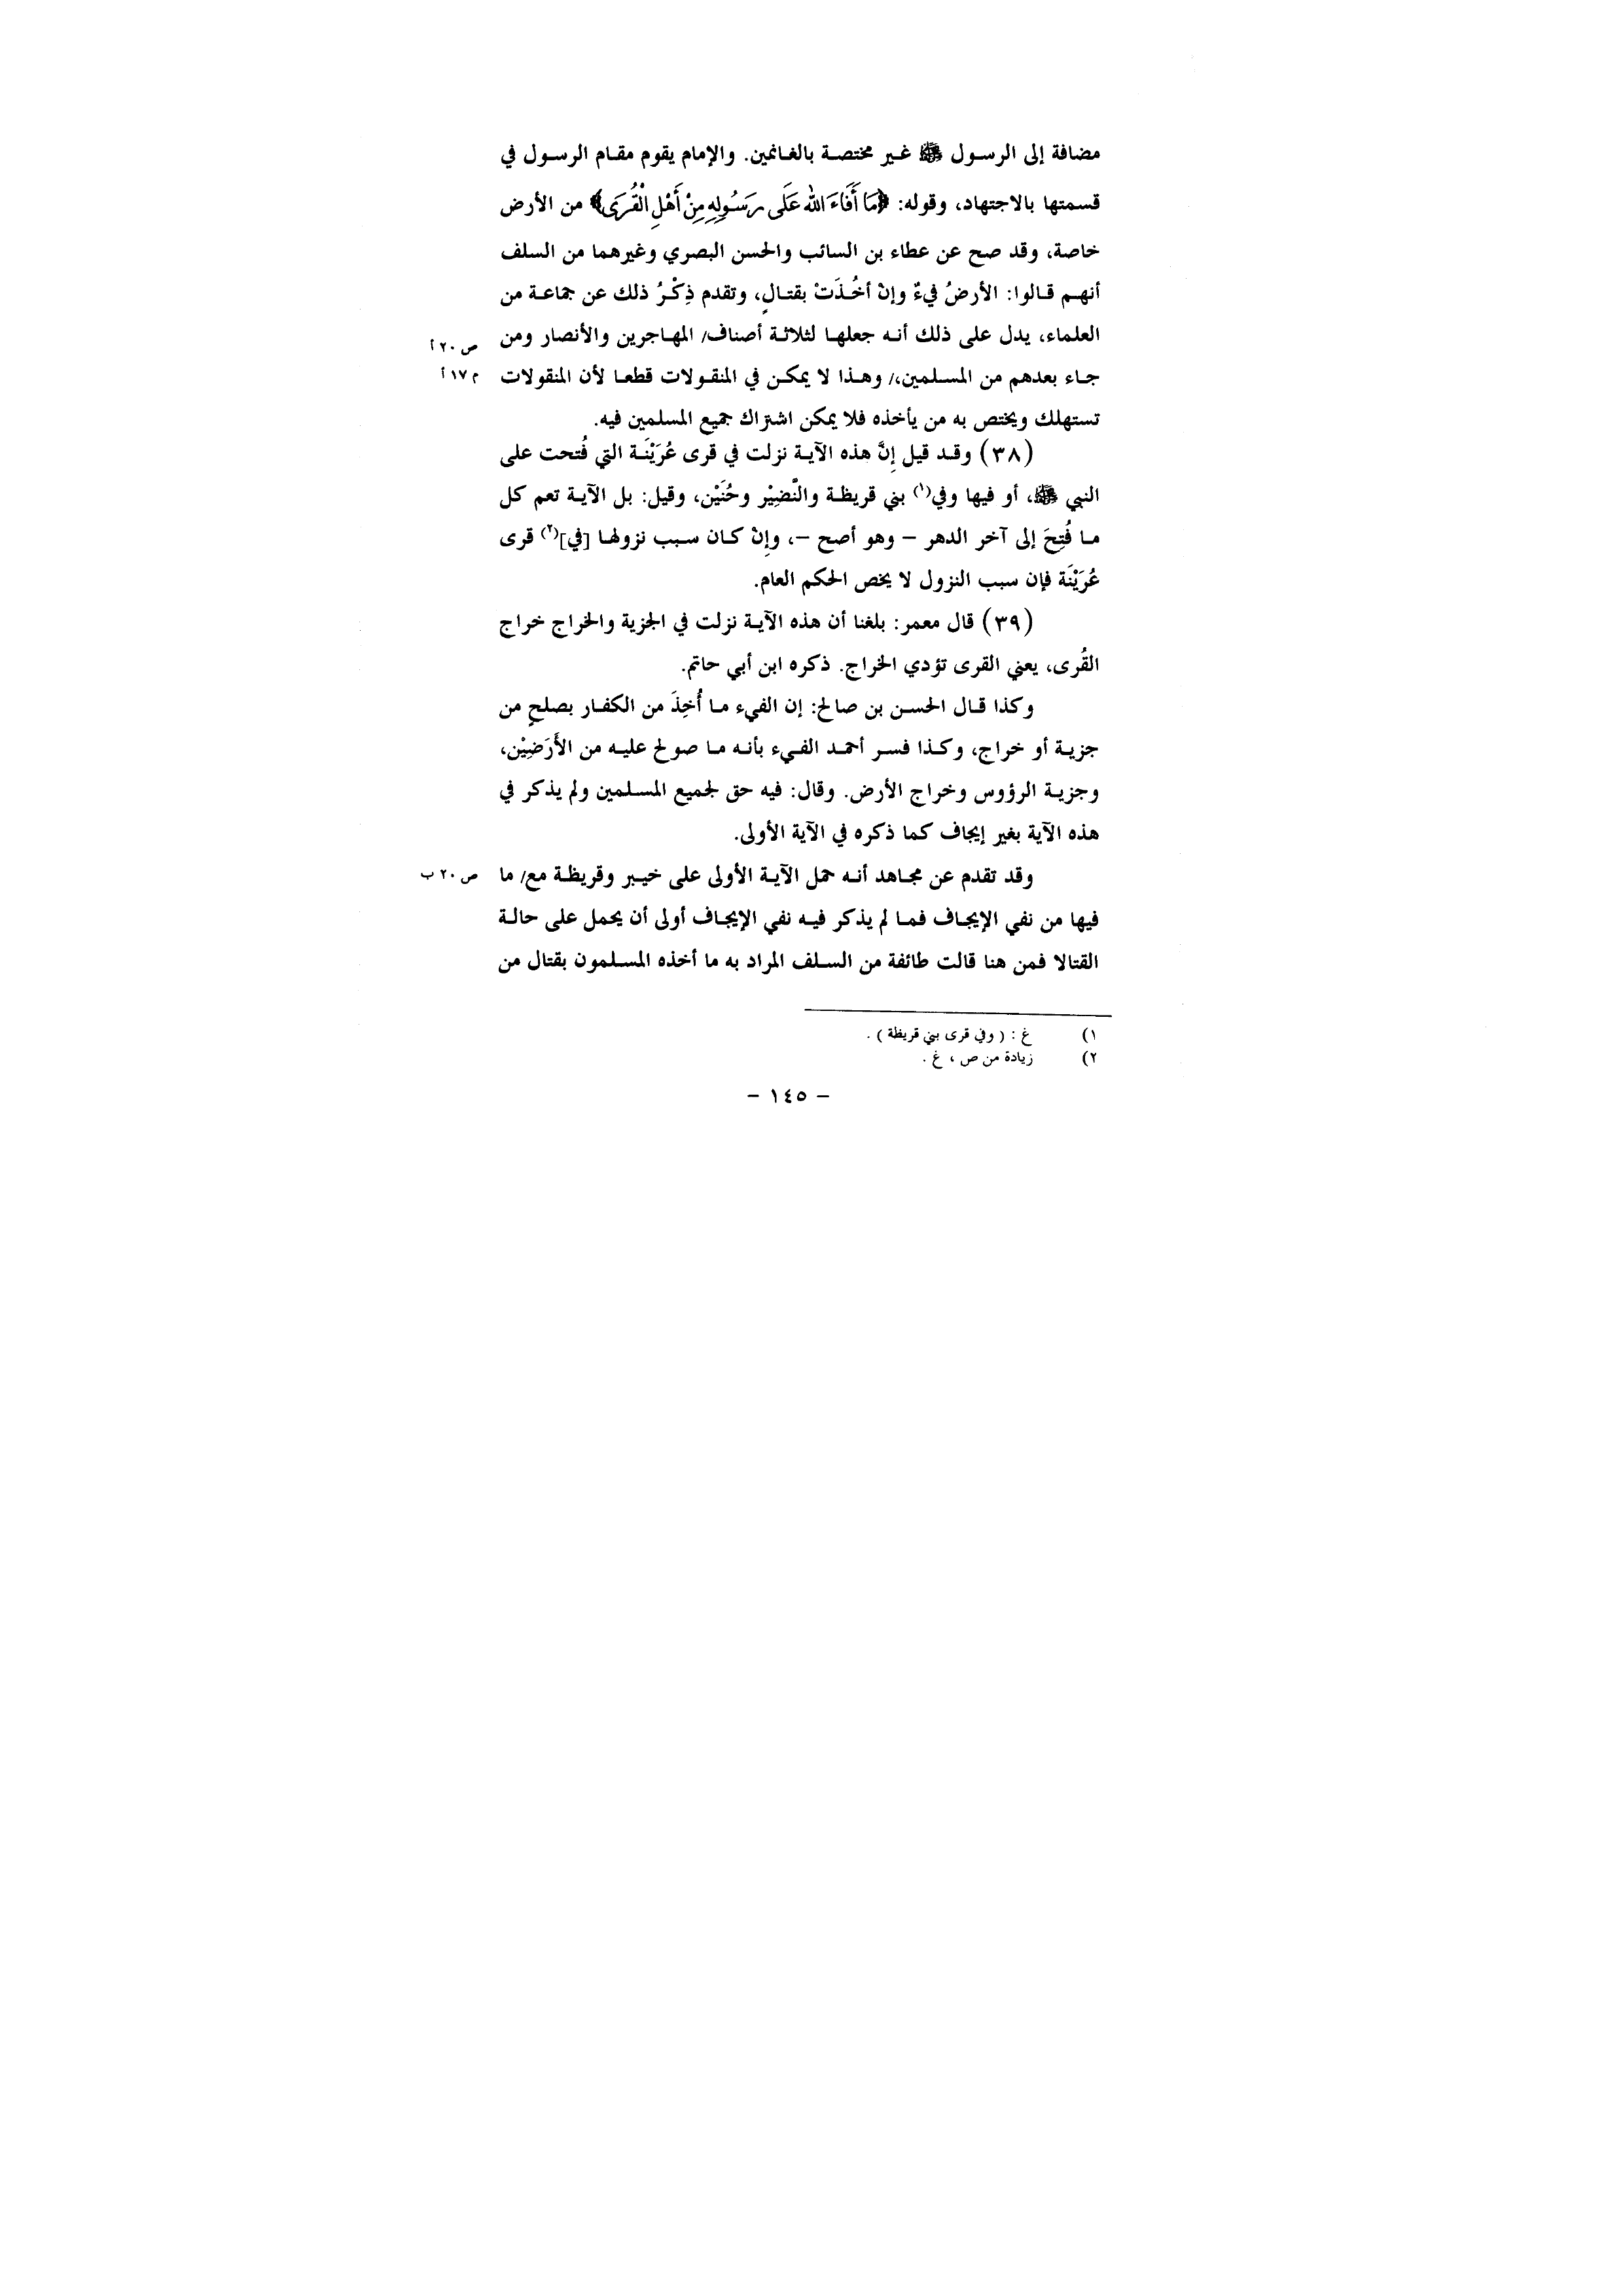 مضافة إلى الرسول ﷺ غير مختصة بالغانمين. والإمام يقوم مقام الرسول في
قسمتها بالاجتهاد، وقوله: ﴿مَا أَفَاءَ اللهُ عَلَى رَسُولِهِ مِنْ أَهْلِ الْقُرَى﴾ من الأرض
خاصة، وقد صح عن عطاء بن السائب والحسن البصري وغيرهما من السلف
أنهم قالوا: الأرضُ فيءٌ وإنْ أخُذَتْ بقتالٍ، وتقدم ذِكْرُ ذلك عن جماعة من
العلماء، يدل على ذلك أنه جعلها لثلاثة أصناف/ المهاجرين والأنصار ومن
ص ٢٠ أ
جاء بعدهم من المسلمين،/ وهذا لا يمكن في المنقولات قطعا لأن المنقولات
م ١٧ أ
تستهلك ويختص به من يأخذه فلا يمكن اشتراك جميع المسلمين فيه.
(٣٨) وقد قيل إنَّ هذه الآية نزلت في قرى عُرَيْنَة التي فُتحت على
النبي ﷺ، أو فيها وفي(١) بني قريظة والنَّضِيْر وحُنَيْن، وقيل: بل الآية تعم كل
ما فُتِحَ إلى آخر الدهر – وهو أصح –، وإنْ كان سبب نزولها [في](٢) قرى
عُرَيْنَة فإن سبب النزول لا يخص الحكم العام.
(٣٩) قال معمر: بلغنا أن هذه الآية نزلت في الجزية والخراج خراج
القُرى، يعني القرى تؤدي الخراج. ذكره ابن أبي حاتم.
وكذا قال الحسن بن صالح: إن الفيء ما أُخِذَ من الكفار بصلحٍ من
جزية أو خراج، وكذا فسر أحمد الفيء بأنه ما صولح عليه من الأَرَضِيْن،
وجزية الرؤوس وخراج الأرض. وقال: فيه حق لجميع المسلمين ولم يذكر في
هذه الآية بغير إيجاف كما ذكره في الآية الأولى.
وقد تقدم عن مجاهد أنه حمل الآية الأولى على خيبر وقريظة مع/ ما
ص ٢٠ ب
فيها من نفي الإيجاف فما لم يذكر فيه نفي الإيجاف أولى أن يحمل على حالة
القتالا فمن هنا قالت طائفة من السلف المراد به ما أخذه المسلمون بقتال من
١) غ : ( وفي قرى بني قريظة ) .
٢) زيادة من ص ، غ .
– ١٤٥ –